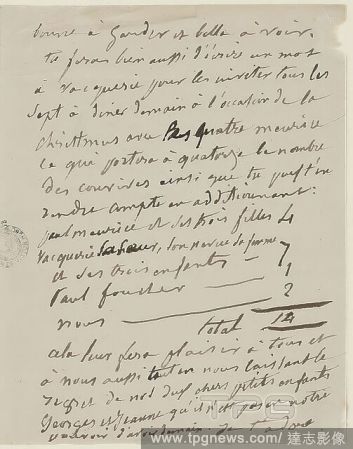 bonne à garder et belle à voir.
tu feras bien aussi d'écrire un mot
à Vacquerie pour les inviter tous les
sept à diner demain à l'occasion de la
Christmas avec les quatre meurice
ce qui portera à quatorze le nombre
des convives ainsi que tu peux t'en
rendre compte en additionnant:
paul meurice et ses trois filles 4
Vacquerie sa sœur, son neveu sa femme
et ses trois enfants — 7
Paul foucher — 1
nous — 2
total 14
cela leur fera plaisir à tous et
à nous aussi tout en nous laissant le
regret de nos deux chers petits enfants
Georges et Jeanne qu'il n'est pas en notre
pouvoir d'avoir demain.
TPG
www.tpgnews.com/ 達志影像